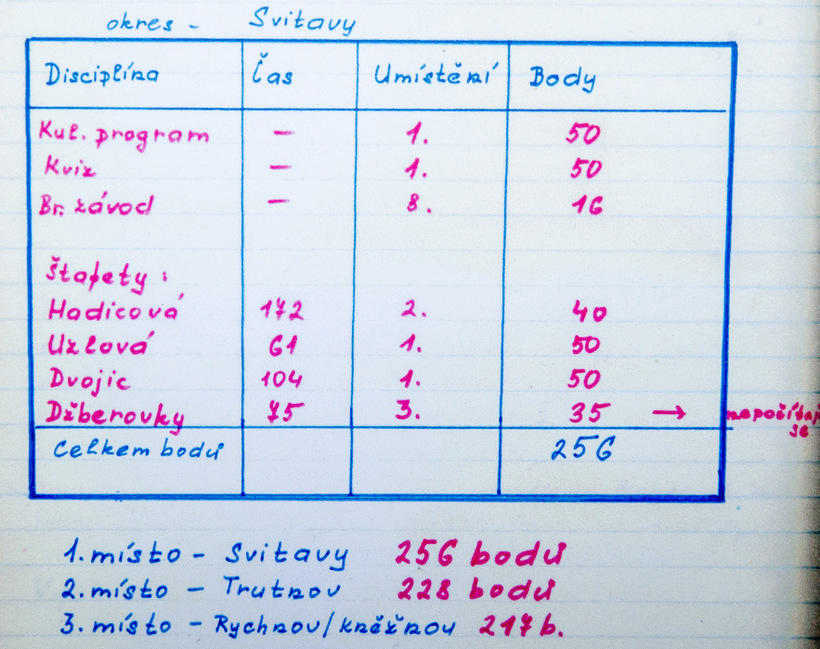 okres - Svitavy
Disciplína Čas Umístění Body
Kul. program - 1. 50
Kviz - 1. 50
Br. závod - 8. 16
Štafety:
Hadicová 172 2. 40
Uzlová 61 1. 50
Dvojic 104 1. 50
Džberovky 75 3. 35 → nepočítají
se
Celkem bodů 256
1. místo - Svitavy 256 bodů
2. místo - Trutnov 228 bodů
3. místo - Rychnov/kněžnou 217 b.